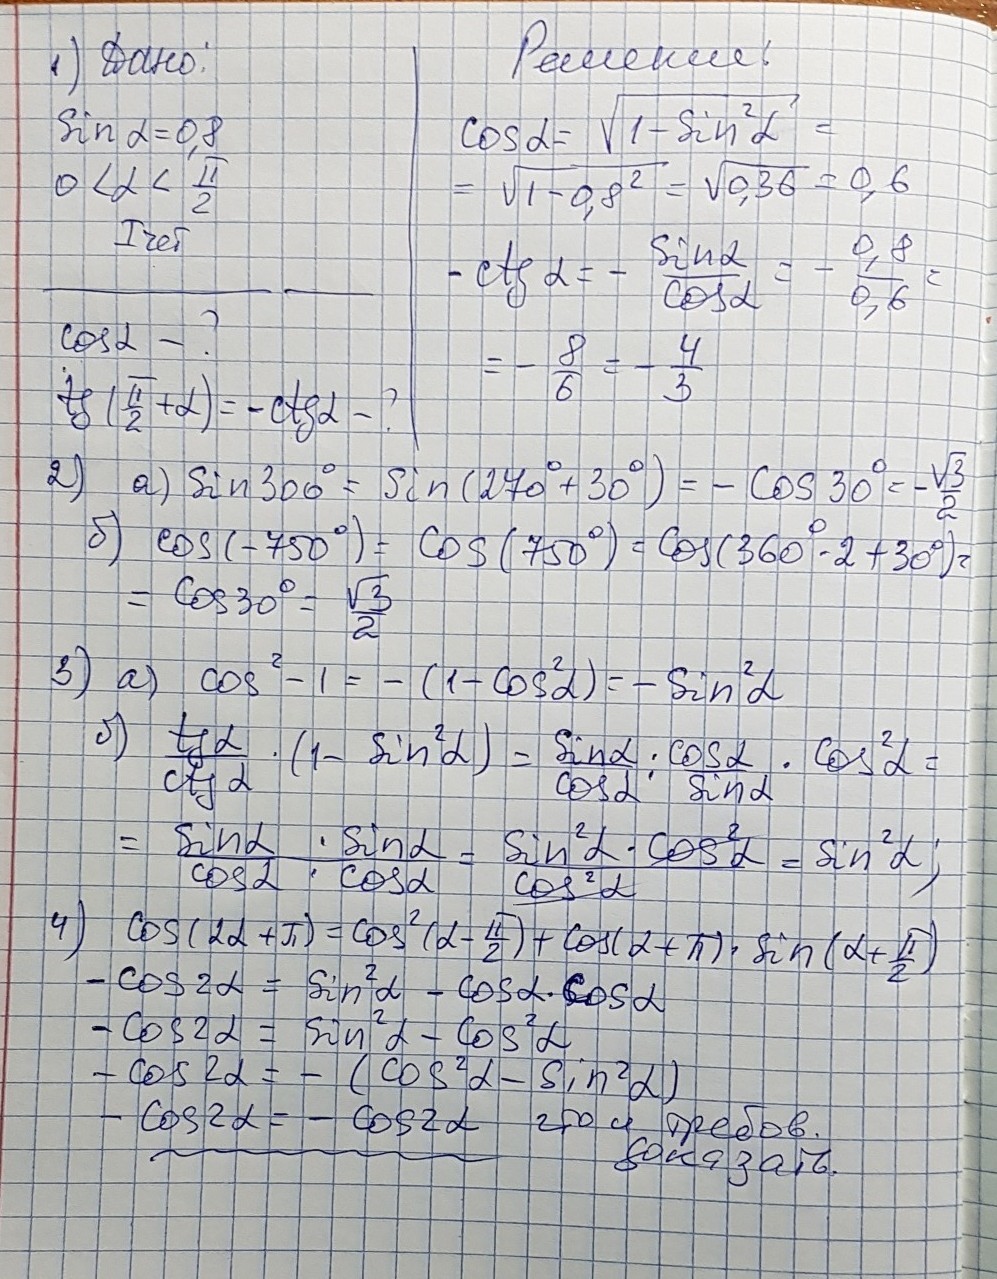 1) Дано:
sin α = 0,8
0 < α < π/2
I чет
cos α - ?
tg(π/2 + α) = -ctg α - ?
Решение:
cos α = √(1 - sin²α) =
= √(1 - 0,8²) = √0,36 = 0,6
-ctg α = - sin α / cos α = - 0,8/0,6 =
= - 8/6 = - 4/3
2) а) sin 300° = sin(270° + 30°) = - cos 30° = - √3/2
б) cos(-750°) = cos(750°) = cos(360°·2 + 30°) =
= cos 30° = √3/2
3) а) cos² - 1 = - (1 - cos²α) = - sin²α
б) tg α / ctg α · (1 - sin²α) = sin α / cos α : cos α / sin α · cos²α =
= sin α · sin α / cos α · cos α = sin²α · cos²α / cos²α = sin²α;
4) cos(2α + π) = cos²(α - π/2) + cos(α + π) · sin(α + π/2)
- cos 2α = sin²α - cos α · cos α
- cos 2α = sin²α - cos²α
- cos 2α = - (cos²α - sin²α)
- cos 2α = - cos 2α что и требов.
доказать.